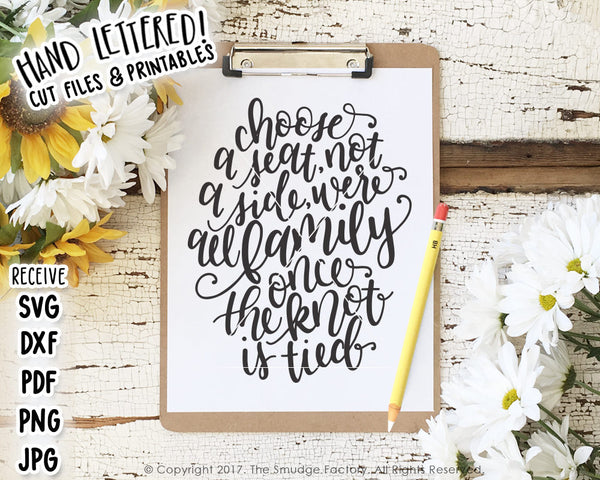 HAND LETTERED!
CUT FILES & PRINTABLES
choose
a seat, not
a side, we're
all family
once
the knot
is tied
HB
RECEIVE
SVG
DXF
PDF
PNG
JPG
© Copyright 2017. The Smudge Factory. All Rights Reserved.